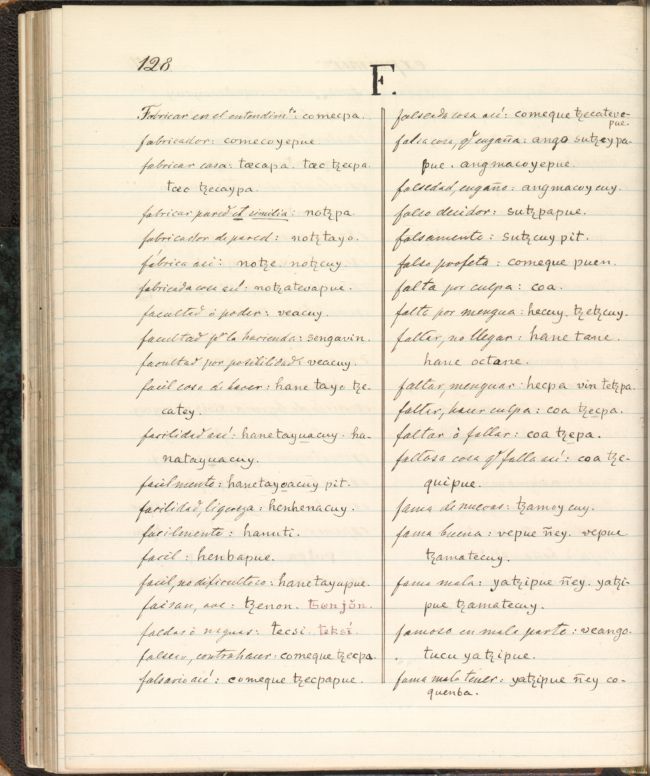 128
F.
Fabricar en el entendim.to: comecpa.
fabricador: comecoyepue
fabricar casa: tæcapa. tæc tzecpa.
tæc tzecaypa.
fabricar pared et similia: notzpa
fabricador de pared: notztayo.
fábrica así: notze. notzcuy.
fabricada cosa así: notzatevapue.
facultad ó poder: veacuy.
facultad pa la hacienda: sengavin.
facultad por posibilidad: veacuy.
facil cosa de hacer: hane tayo tze-
catey.
facilidad así: hanetayuacuy. ha-
natayuacuy.
fácilmente: hanetayoacuy pit.
facilidad, ligereza: henhenacuy.
fácilmente: hanuti.
facil: henbapue.
facil, no dificultoso: hanetayupue.
faisan, ave: tzenon. tsunjŏn.
faldas ó naguas: tecsi. teksí.
falsear, contrahacer: comeque tzecpa.
falsario así: comeque tzecpapue.
falseada cosa así: comeque tzecateve-
pue.
falsa cosa, q.e engaña: ango sutzeypa-
pue. angmacoyepue.
falsedad, engaño: angmacoycuy.
falso decidor: sutzpapue.
falsamente: sutzcuy pit.
falso profeta: comeque puen.
falta por culpa: coa.
falta por mengua: hecuy. tzetzcuy.
faltar, no llegar: hane tane.
hane octane.
faltar, menguar: hecpa vin tetzpa.
faltar, hacer culpa: coa tzecpa.
faltar ó fallar: coa tzepa.
faltosa cosa q.e falla así: coa tze-
quipue.
fama de nuevas: tzamoycuy.
fama buena: vepue ñey. vepue
tzamatecuy.
fama mala: yatzipue ñey. yatzi-
pue tzamatecuy.
famoso en mala parte: veango.
tucu yatzipue.
fama mala tener: yatzipue ñey co-
quenba.